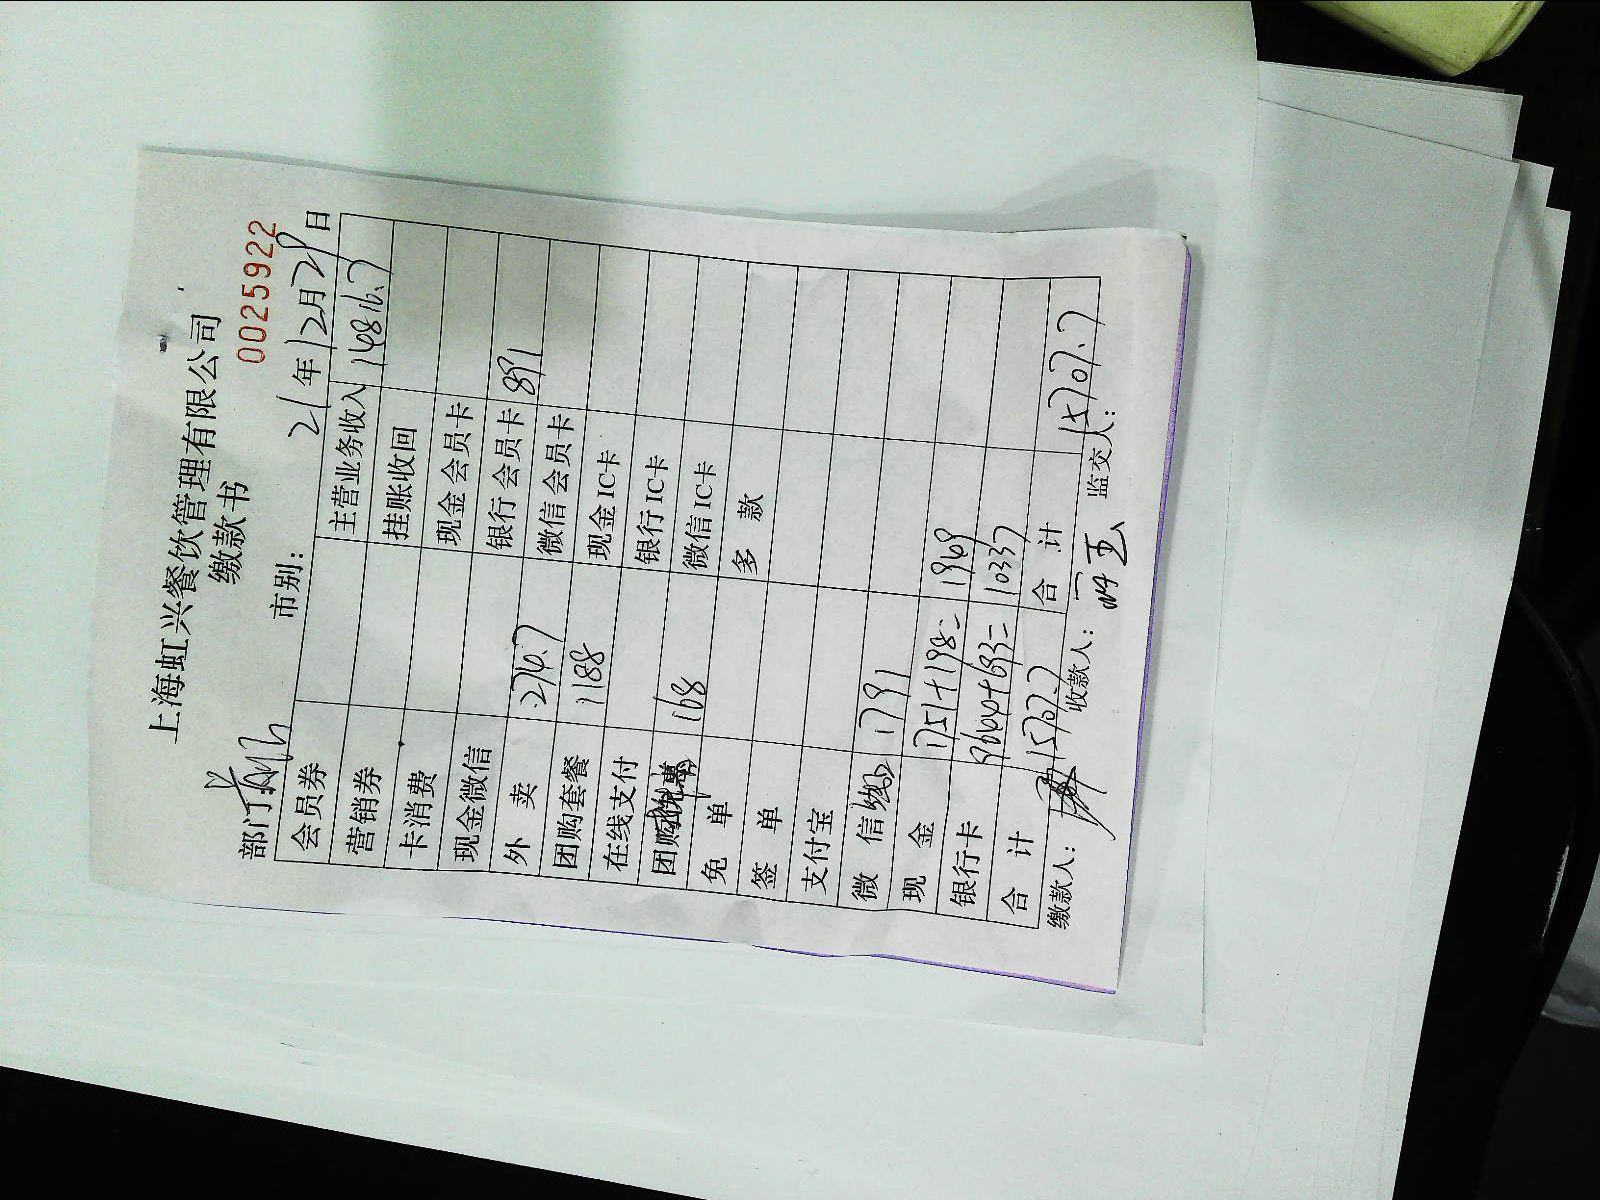 上海虹兴餐饮管理有限公司
缴款书
0025922
部门: 市别: 21年12月29日
会员券 主营业务收入 14816.7
营销券 挂账收回
卡消费 现金会员卡
现金微信 银行会员卡 891
外 卖 274.7 微信会员卡
团购套餐 1188 现金IC卡
在线支付 银行IC卡
团购 168 微信IC卡
免 单 多 款
签 单
支付宝
微 信 1791
现 金 1751+198= 1949
银行卡 9644+693= 10337
合 计 15707.7 合 计 15707.7
缴款人: 收款人: 监交人: